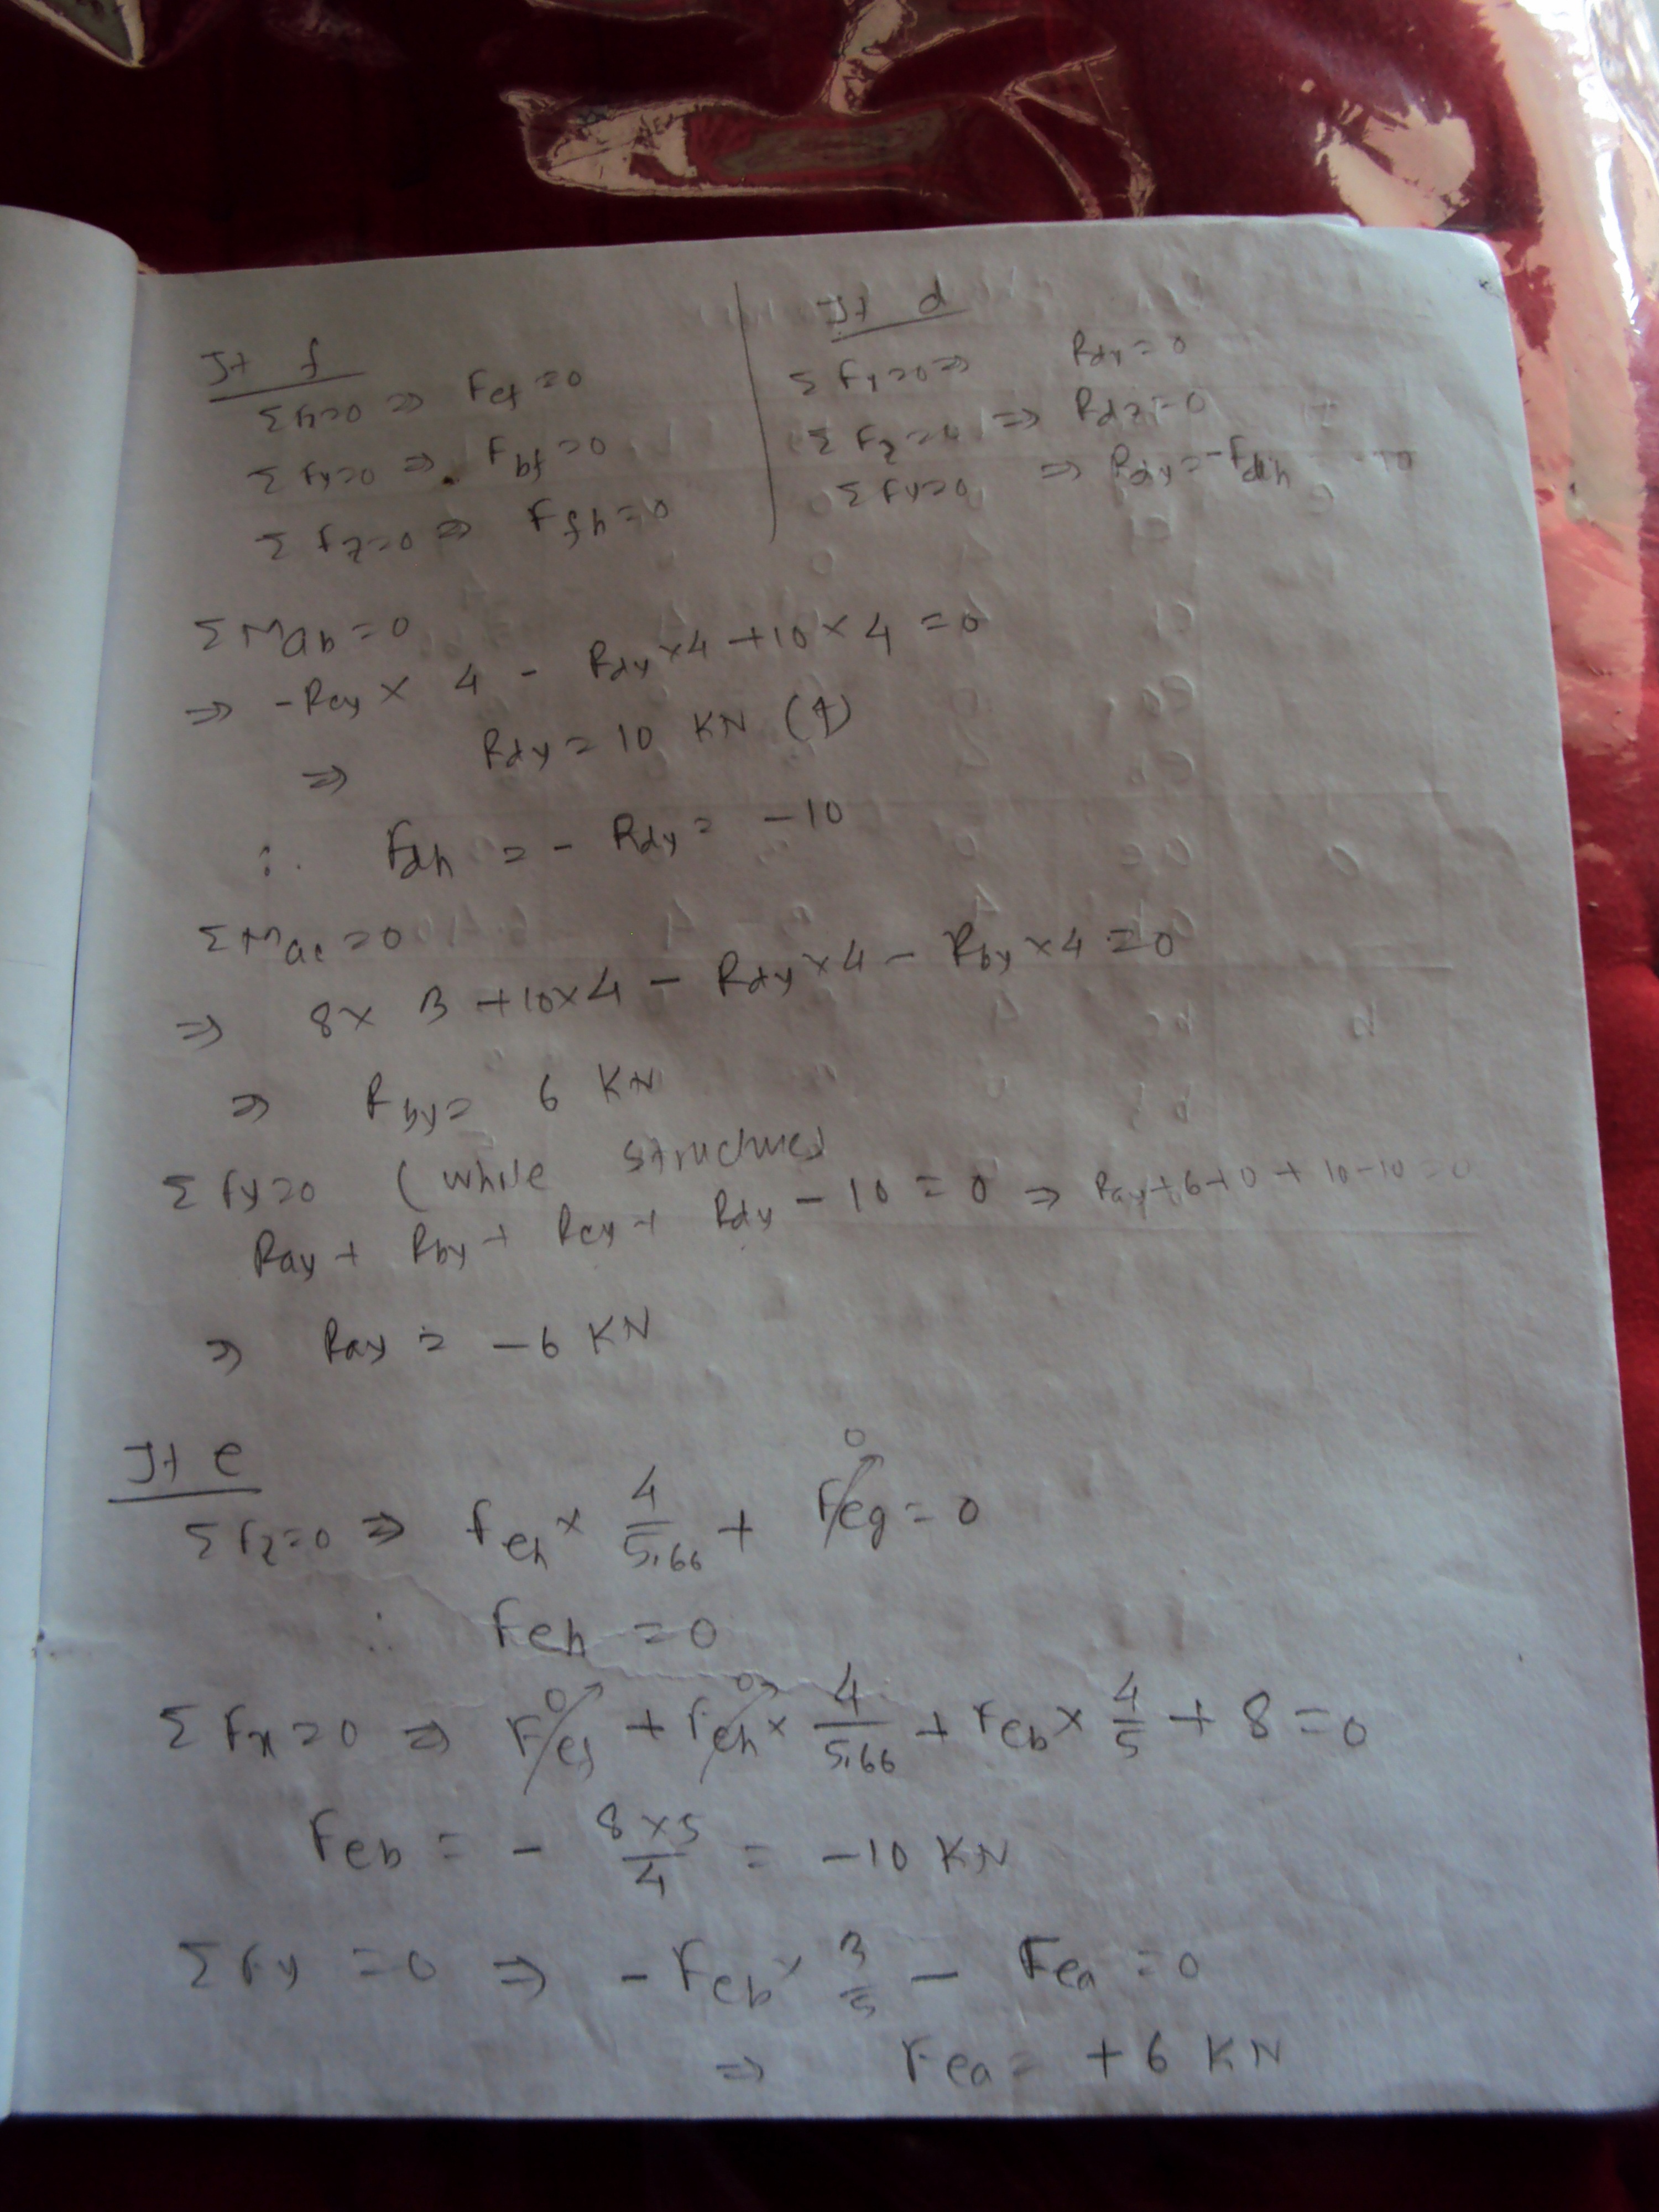 Jt f
Σfx=0 ⇒ Fef=0
Σfy=0 ⇒ Fbf=0
Σfz=0 ⇒ Ffh=0
Jt d
Σfx=0 ⇒ Rdx=0
Σfz=0 ⇒ Rdz=0
Σfy=0 ⇒ Rdy=-Fdh
ΣMab=0
⇒ -Rcy × 4 - Rdy×4 +10×4 =0
⇒ Rdy=10 KN (↑)
∴ Fdh = - Rdy = -10
ΣMac=0
⇒ 8×3 +10×4 - Rdy×4 - Rby×4=0
⇒ Rby= 6 KN
Σfy=0 (while structure)
Ray + Rby + Rcy + Rdy -10=0 ⇒ Ray+6+0+10-10=0
⇒ Ray = -6 KN
Jt e
Σfz=0 ⇒ feh × 4/5.66 + Feg=0
∴ Feh =0
Σfx=0 ⇒ Fef + Feh× 4/5.66 + Feb× 4/5 + 8=0
Feb = - 8×5/4 = -10 KN
Σfy =0 ⇒ -Feb× 3/5 - Fea=0
⇒ Fea= +6 KN